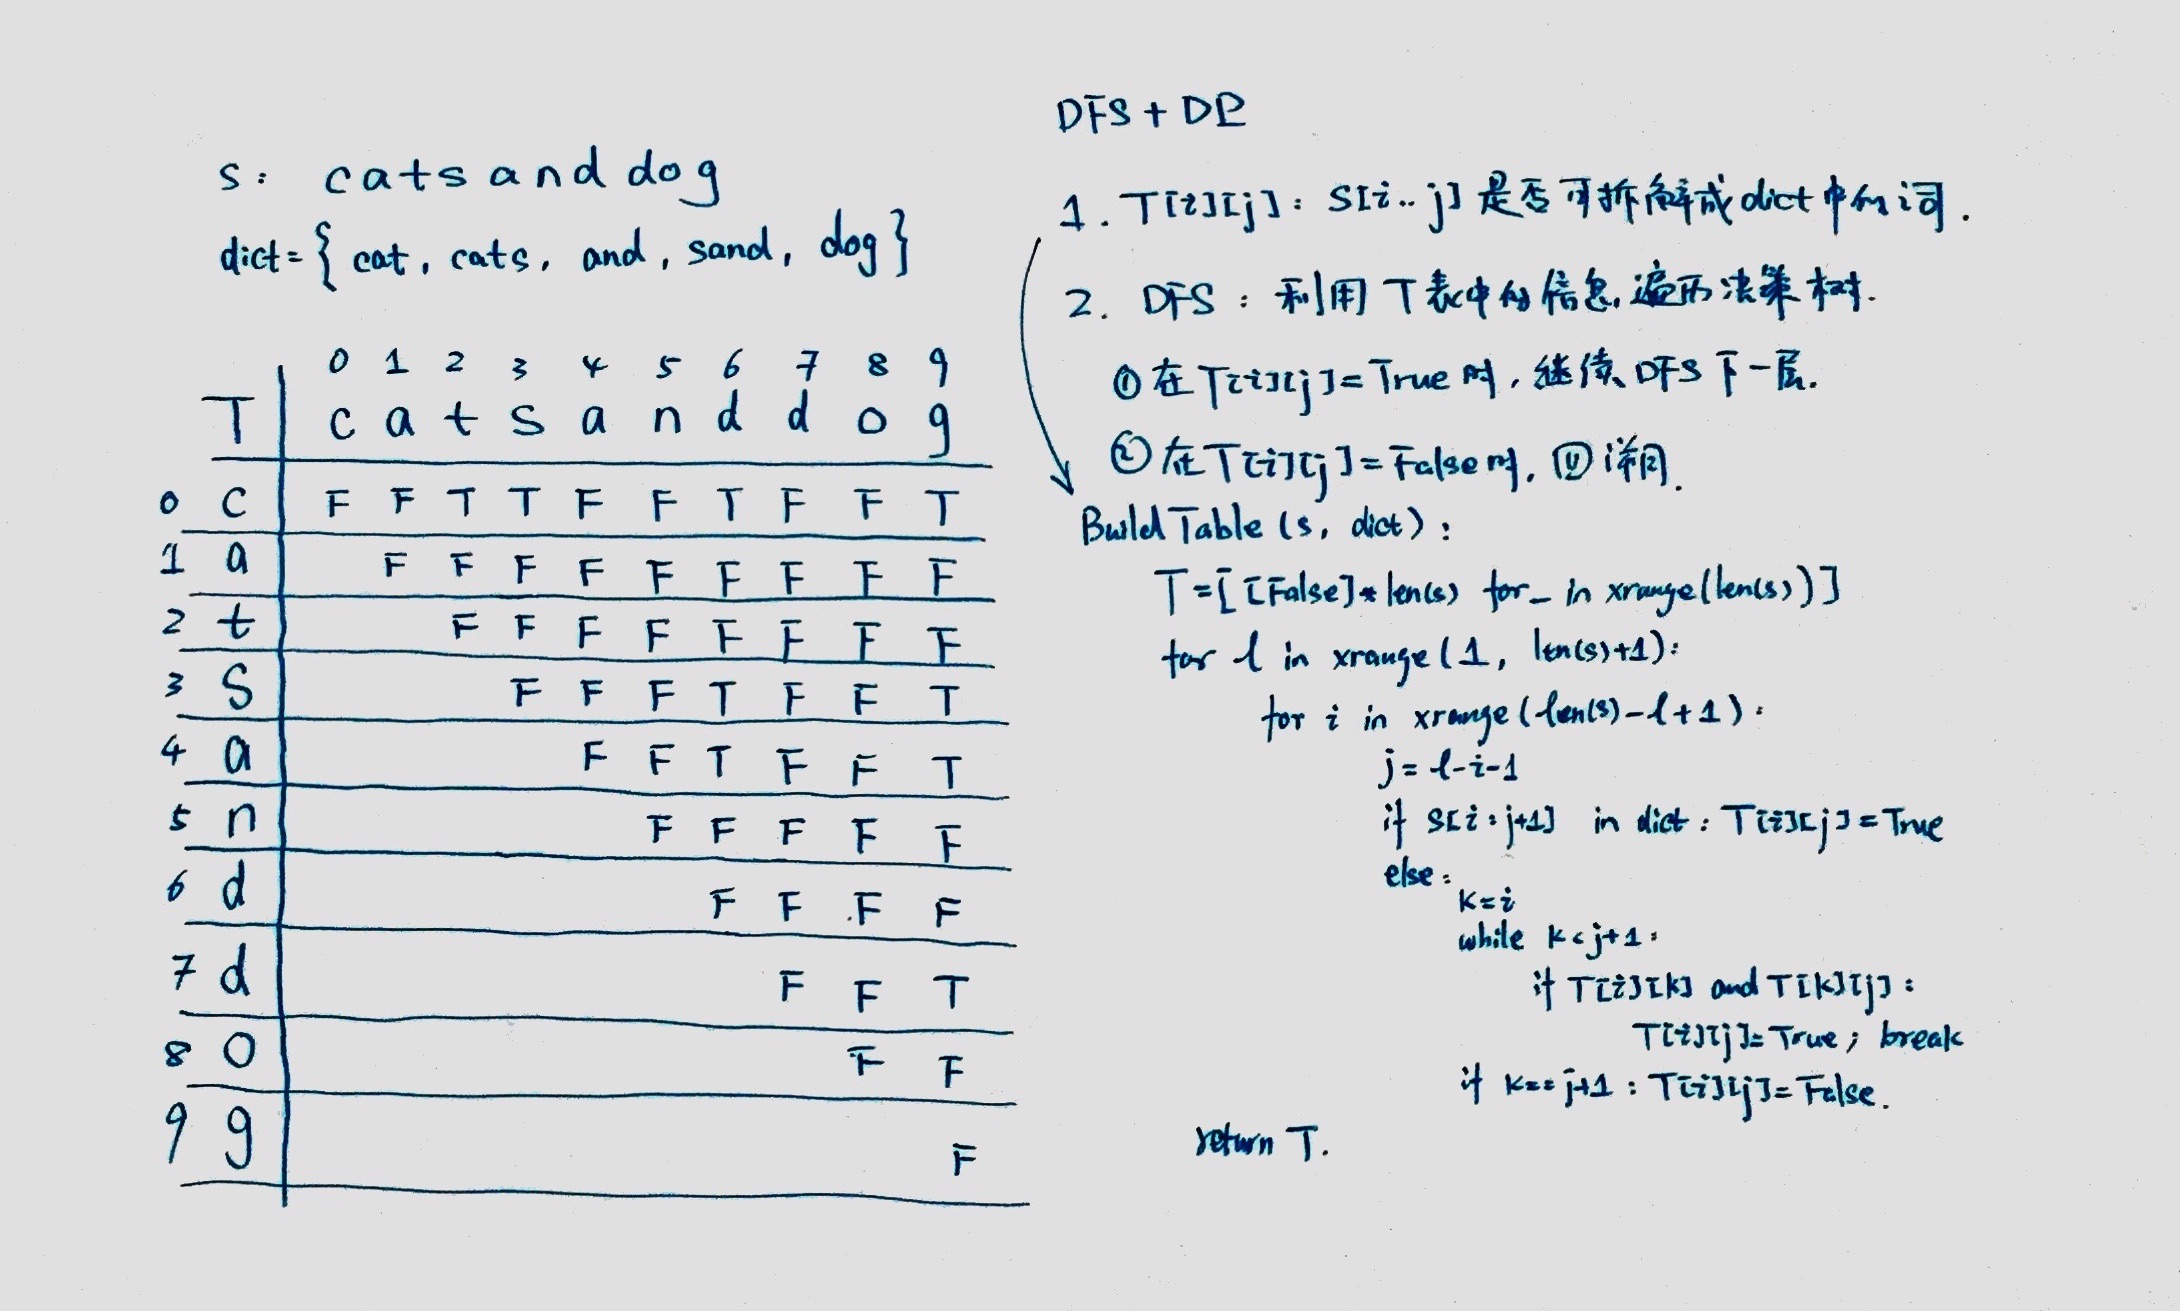 s: catsanddog
dict={cat, cats, and, sand, dog}
T 0 1 2 3 4 5 6 7 8 9
c a t s a n d d o g
0 c F F T T F F T F F T
1 a F F F F F F F F F
2 t F F F F F F F F
3 s F F F T F F T
4 a F F T F F T
5 n F F F F F
6 d F F F F
7 d F F T
8 o F F
9 g F
DFS + DP
1. T[i][j]: S[i..j] 是否可拆解成dict中的词.
2. DFS: 利用T表中的信息,遍历决策树.
① 在T[i][j]=True时, 继续DFS下一层.
② 在T[i][j]=False时, 回溯.
Build Table (s, dict):
T=[[False]*len(s) for _ in xrange(len(s))]
for l in xrange(1, len(s)+1):
for i in xrange(len(s)-l+1):
j=l-i-1
if S[i:j+1] in dict: T[i][j]=True
else:
k=i
while k<j+1:
if T[i][k] and T[k][j]:
T[i][j]=True; break
if k==j+1: T[i][j]=False.
return T.